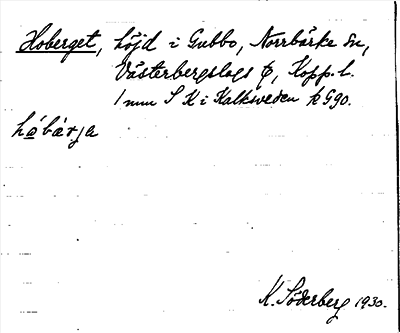 Hoberget, höjd i Gubbo, Norrbärke sn,
Västerbergslags ., Kopp. l.
1 mm S K i Kalksveden k G90.
hǻbä́rja
K. Söderberg 1930.